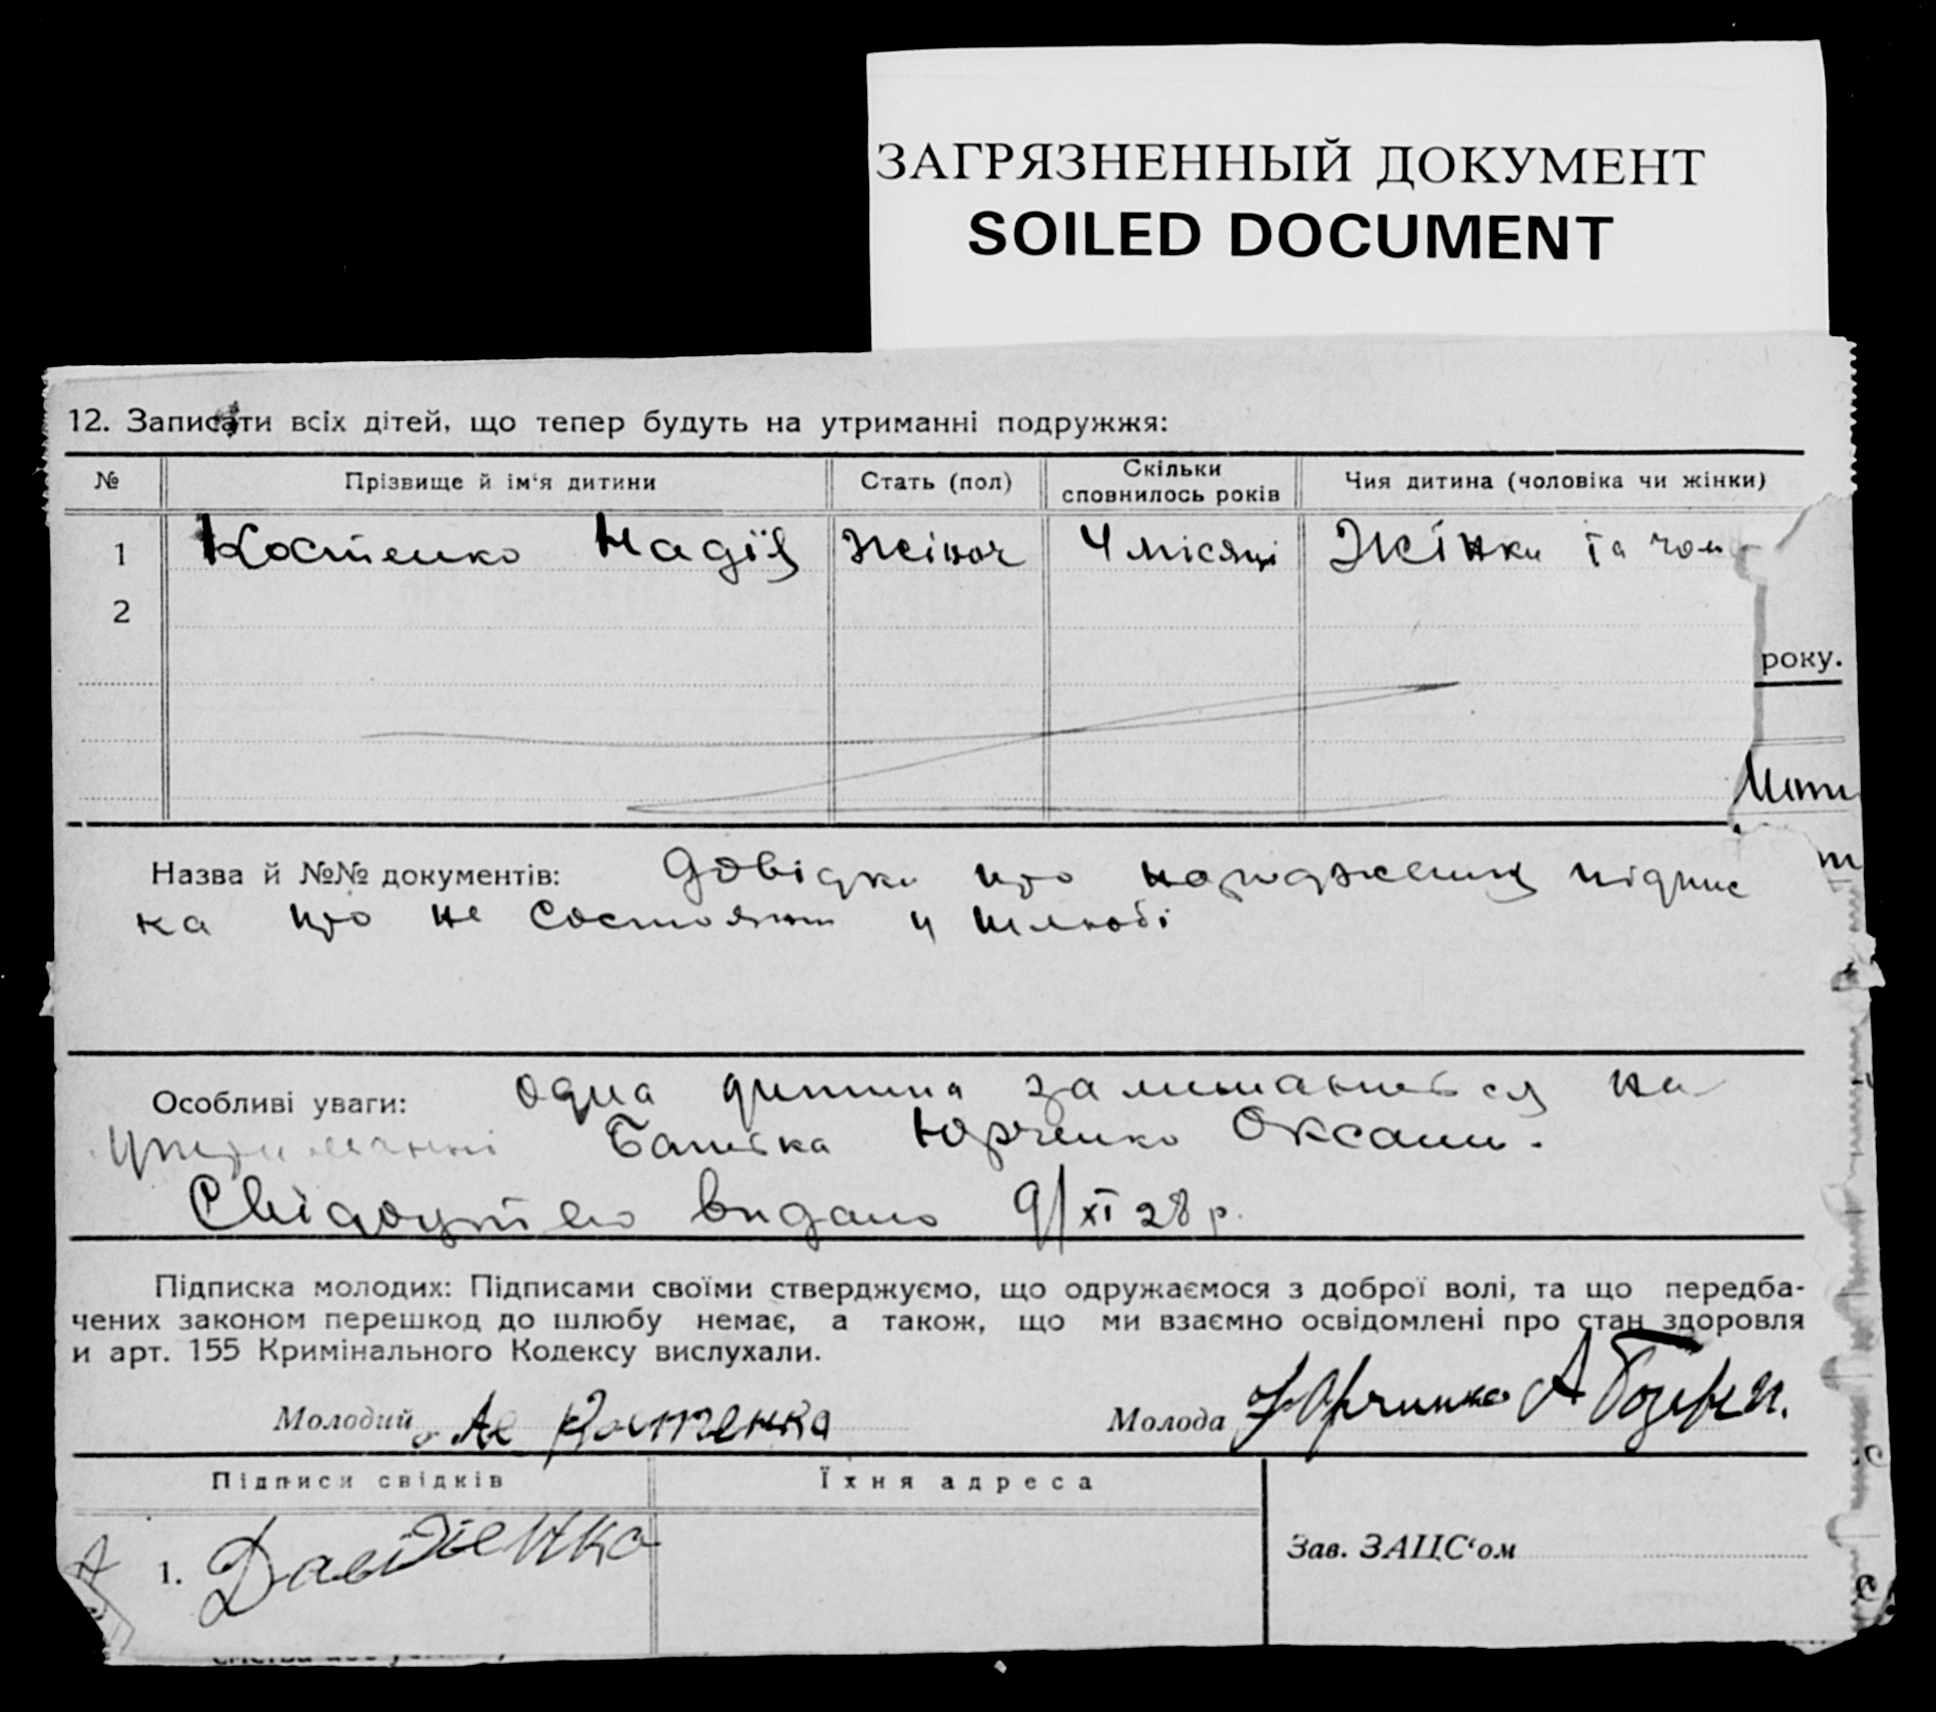 ЗАГРЯЗНЕННЫЙ ДОКУМЕНТ
SOILED DOCUMENT
12. Записати всіх дітей, що тепер будуть на утриманні подружжя:
№ Прізвище й ім'я дитини Стать (пол) Скільки сповнилось років Чия дитина (чоловіка чи жінки)
1 Костенко Надія Жіноч 4 місяці Жінки та чол
2
року.
Назва й №№ документів: Довідки про народження підпис
ка про не состояння у шлюбі
Особливі уваги: одна дитина залишається на
утриманні Батька Юрченко Оксани.
Свідоцтво видано 9/XI 28 р.
Підписка молодих: Підписами своїми стверджуємо, що одружаємося з доброї волі, та що передба-
чених законом перешкод до шлюбу немає, а також, що ми взаємно освідомлені про стан здоровля
и арт. 155 Кримінального Кодексу вислухали.
Молодий Костенко Молода Юрченко А
Підписи свідків Їхня адреса
1. Давиденко Зав. ЗАЦС'ом